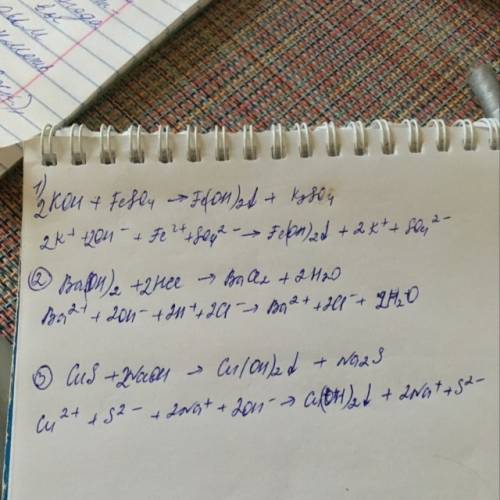 1)
2KOH + FeSO4 → Fe(OH)2↓ + K2SO4
2K⁺ + 2OH⁻ + Fe²⁺ + SO4²⁻ → Fe(OH)2↓ + 2K⁺ + SO4²⁻
② Ba(OH)2 + 2HCl → BaCl2 + 2H2O
Ba²⁺ + 2OH⁻ + 2H⁺ + 2Cl⁻ → Ba²⁺ + 2Cl⁻ + 2H2O
③ CuS + 2NaOH → Cu(OH)2↓ + Na2S
Cu²⁺ + S²⁻ + 2Na⁺ + 2OH⁻ → Cu(OH)2↓ + 2Na⁺ + S²⁻